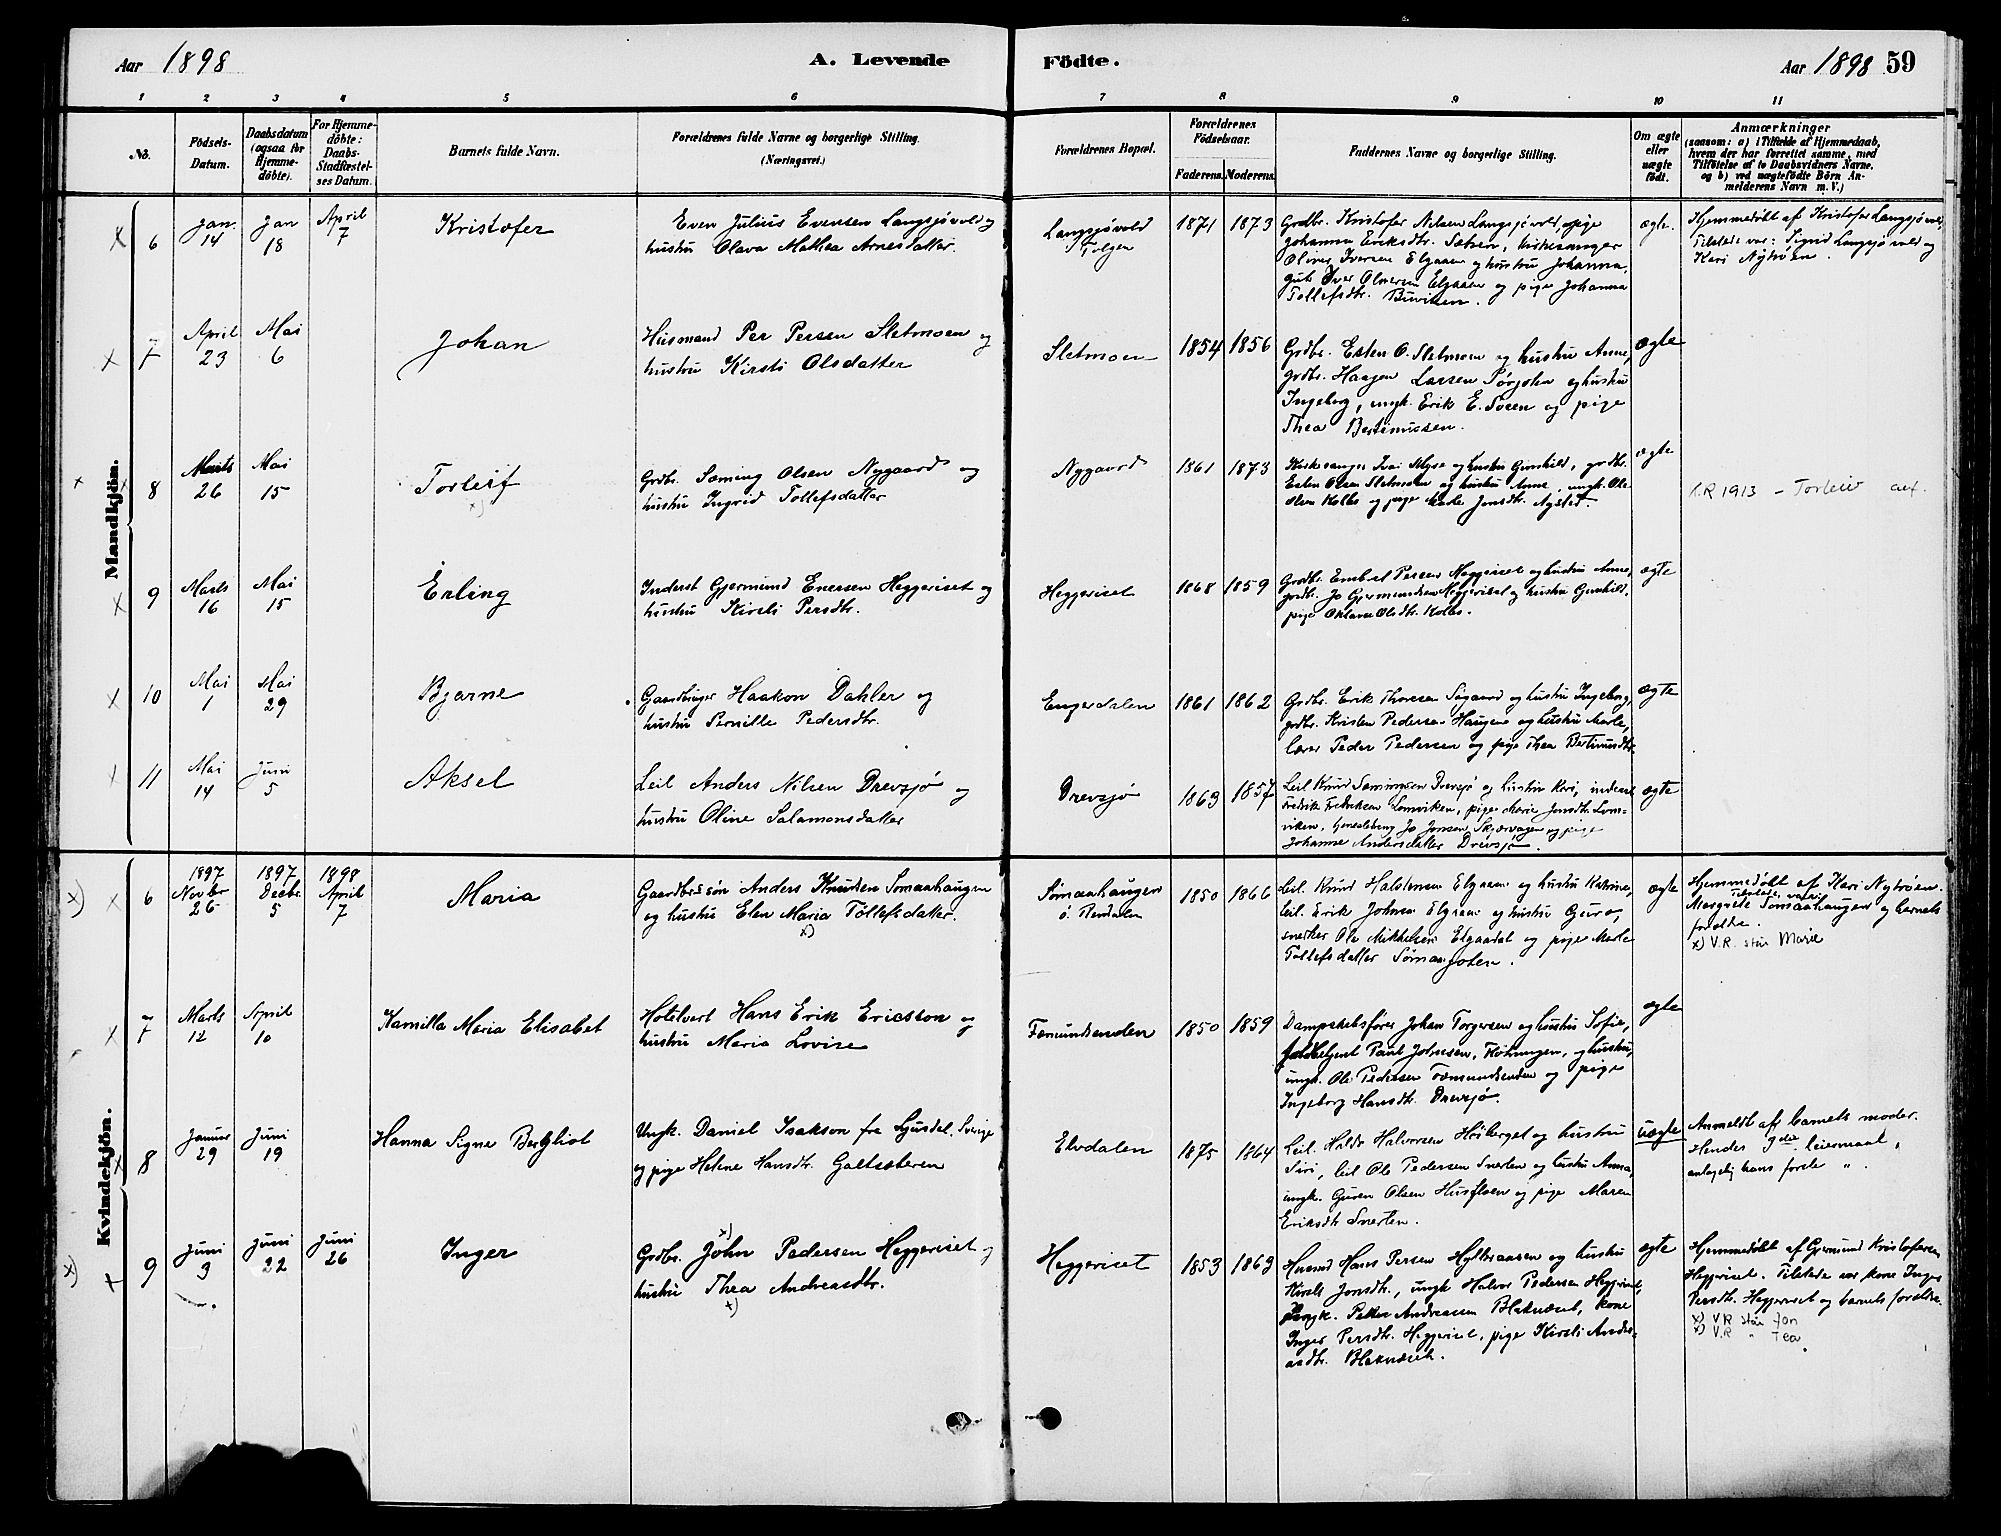 Aar 1898
A. Levende
Födte.
Aar 1898 59
1 2 3 4 5 6 7 8 9 10 11
No.
Födsels-
Datum.
Daabsdatum
(ogsaa for
Hjemme-
döbte).
For Hjemme-
döbte:
Daabs-
Stadfæstel-
ses Datum.
Barnets fulde Navn.
Forældrenes fulde Navne og borgerlige Stilling.
(Næringsvei.)
Forældrenes Bopæl.
Forældrenes
Födselsaar.
Faderens. Moderens.
Faddernes Navne og borgerlige Stilling.
Om ægte
eller
uægte
födt.
Anmærkninger
(saasom: a) i Tilfælde af Hjemmedaab,
hvem der har forrettet samme, med
Tilföielse af to Daabsvidners Navne,
og b) ved uægtefödte Börn An-
melderens Navn m. V.)
Mandkjön.
6
Jan.
14
Jan
18
April
7
Kristofer
Even Julius Evensen Langsjøvold og
hustru Olava Mathea Arnesdatter.
Langsjøvold
Tolgen
1871 1873
Grdbr. Kristofer Nilsen Langsjøvold, pige
Johanna Eriksdtr. Sætren, kirkesanger
Oliver Iversen Elgaaen og hustru Johanna,
gut Iver Olversen Elgaaen og pige Johanna
Tollefsdtr. Burviken.
ægte.
Hjemmedøbt af Kristofer Langsjøvold,
Tilstede var: Sigrid Langsjøvold og
Kari Nyhøen.
7
April
23
Mai
6
Johan
Husmand Per Persen Sletmoen og
hustru Kirsti Olsdatter
Sletmoen
1854 1856
Grdbr. Esten O. Sletmoen og hustru Anne,
grdbr. Haagen Larsen Sørjohn og hustru
Ingeborg, ungk. Erik E. Soren og pige
Thea Bertinussen.
ægte
8
Marts
26
Mai
15
Torleif
x)
Grdbr. Sæming Olsen Nygaard og
hustru Ingrid Tollefsdatter
Nygaard
1861 1873
Kirkesanger Ivar Myse og hustru Gunhild, grdbr.
Esten Olsen Sletmoen og hustru Anne, ungk. Ole
Olsen Kolbo og pige Marte Jonsdtr. Nysted.
ægte
K.R 1913 - Torleiv
9
Marts
16
Mai
15
Erling
Inderst Gjermund Enersen Heggeriset og
hustru Kirsti Persdtr.
Heggeriset
1868 1859
Grdbr. Embret Persen Heggeriset og hustru Anne,
grdbr. Jo Gjermundsen Heggeriset og hustru Gunhild,
pige Oktava Olsdtr. Kolbo.
ægte
10
Mai
1
Mai
29
Bjarne
Gaardbruger Haakon Dahler og
hustru Pernille Pedersdtr.
Engerdalen
1861 1862
Grdbr. Erik Thoresen Søgaard og hustru Ingeborg,
grdbr. Kristen Pedersen Haugene og hustru Marte,
lærer Peder Pedersen og pige Thea Bertinusdtr.
ægte
11
Mai
14
Juni
5
Aksel
Leil. Anders Nilsen Drevsjø og
hustru Oline Salamonsdatter
Drevsjø
1863 1857
Leil. Knud Sæmingsen Drevsjø og hustru Kari, inderst
Fredrik Fredriksen Lomviken, pige Marie Jonsdtr. Lom-
viken, Jo Jonsen Skjærvagen og pige
Johanne Andersdatter Drevsjø.
ægte
Kvindekjön.
x)
6
1897
Novbr
26
1897
Decbr.
5
1898
April
7
Maria
Gaardbr.søn Anders Knudsen Sømaahaugen
og hustru Elen Maria Tollefsdatter.
x)
Sømaahaugen
ø. Rendalen
1850 1866
Leil. Knud Halstensen Elgaaen og hustru Katrine,
leil. Erik Johnsen Elgaaen og hustru Guro,
snekker Ole Mikkelsen Elgaadal og pige Marte
Tollefsdatter Sømaagoten.
ægte
Hjemmedøbt af Kari Nyhøen.
Tilstede var:
Margrete Sømaahaugen og barnets
forældre.
x) V.R. står Marie
7
Marts
12
April
10
Kamilla Maria Elisabet
Hotelvert Hans Erik Ericsson og
hustru Maria Lovise
Fæmundsenden
1850 1859
Dampskibsfører Johan Torgersen og hustru Sofie,
Paul Johnsen, Fløtningen, og hustru,
ungk. Ole Pedersen Fæmundsenden og pige
Ingeborg Hansdtr. Drevsjø.
ægte
8
Januar
29
Juni
19
Hanna Signe Bergliot
Ungk. Daniel Isakson fra Ljusdal, Sverige
og pige Helene Hansdtr. Galtsæteren
Elvdalen
1875 1864
Leil. Haldo Halvorsen Høiberget og hustru
Siri, leil Ole Pedersen Snerten og hustru Anna,
ungk. Guren Olsen Husfloen og pige Maren
Eriksdtr Snerten.
uægte
Anmeldt af barnets moder.
Hendes 3die leiermaal,
antagelig hans første ".
x)
9
Juni
3
Juni
22
Juni
26
Inger
x)
Grdbr. John Pedersen Heggeriset og
hustru Thea Andreasdtr.
x)
Heggeriset
1853 1863
Husmd Hans Persen Hylleraasen og hustru
Kirsti Jonsdtr., ungk Halvor Pedersen Heggeriset,
ungk. Petter Andreassen Blakaaset, kone
Inger Persdtr. Heggeriset, pige Kirsti Andre-
asdtr. Blakaaset.
ægte
Hjemmedøbt af Gjermund Kristofersen
Heggeriset. Tilstede var kone Inger
Persdtr. Heggeriset og barnets forældre.
x) V.R står Jon
x) V.R " Tea